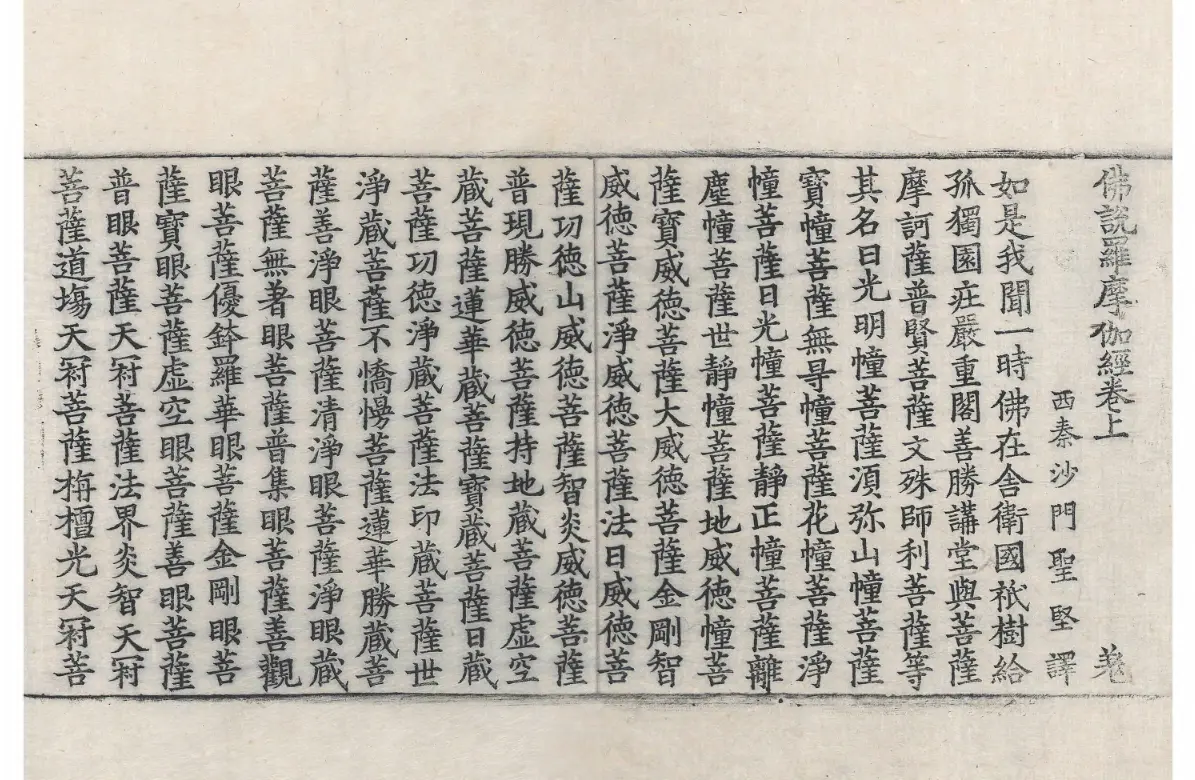 佛說羅摩伽經卷上
西秦沙門聖堅譯
如是我聞一時佛在舍衛國祇樹給
孤獨園庄嚴重閣善勝講堂與菩薩
摩訶薩普賢菩薩文殊師利菩薩等
其名曰光明幢菩薩須弥山幢菩薩
寶幢菩薩無㝵幢菩薩花幢菩薩淨
幢菩薩日光幢菩薩靜正幢菩薩離
塵幢菩薩世靜幢菩薩地威徳幢菩
薩寶威徳菩薩大威徳菩薩金剛智
威徳菩薩淨威徳菩薩法日威徳菩
薩功徳山威徳菩薩智炎威徳菩薩
普現勝威徳菩薩持地藏菩薩虛空
藏菩薩蓮華藏菩薩寶藏菩薩日藏
菩薩功徳淨藏菩薩法印藏菩薩世
淨藏菩薩不憍慢菩薩蓮華勝藏菩
薩善淨眼菩薩清淨眼菩薩淨眼藏
菩薩無著眼菩薩普集眼菩薩善觀
眼菩薩優鉢羅華眼菩薩金剛眼菩
薩寶眼菩薩虛空眼菩薩善眼菩薩
普眼菩薩天冠菩薩法界炎智天冠
菩薩道場天冠菩薩栴檀光天冠菩